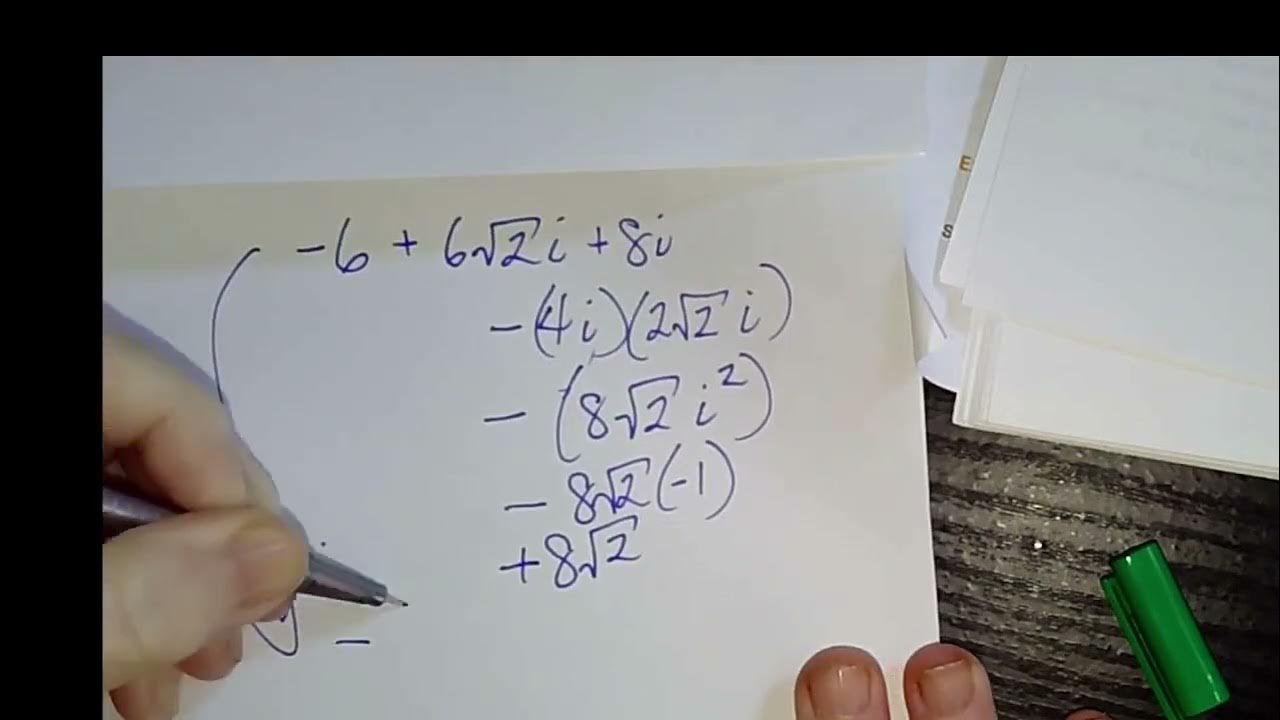 -6 + 6√2 i + 8i
-(4i)(2√2 i)
-(8√2 i²)
- 8√2(-1)
+8√2
-
E
S